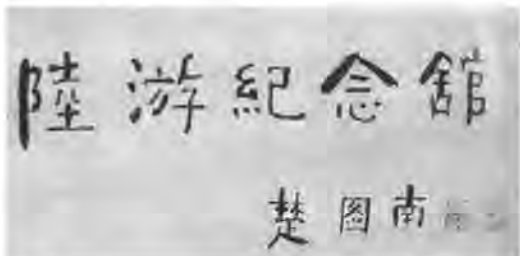 陸游紀念舘
楚圖南